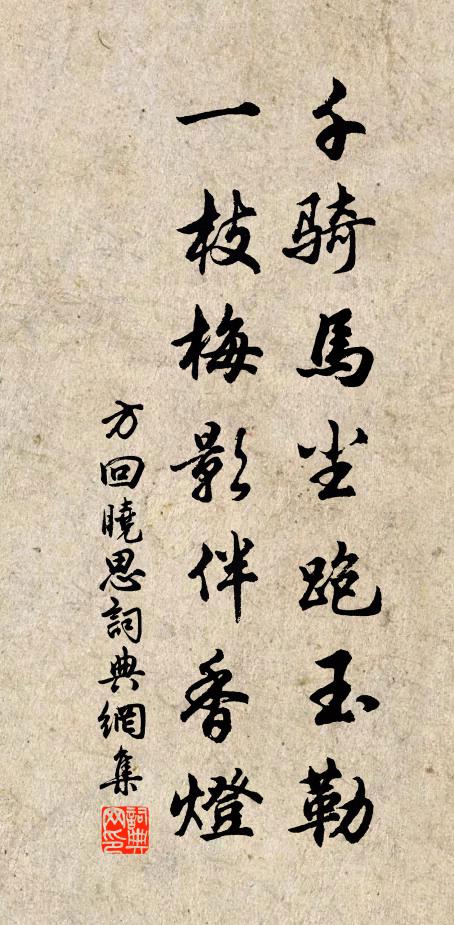 千騎馬尘跑玉勒
一枝梅影伴香燈
方回曉思詞典網集
詞典
网印